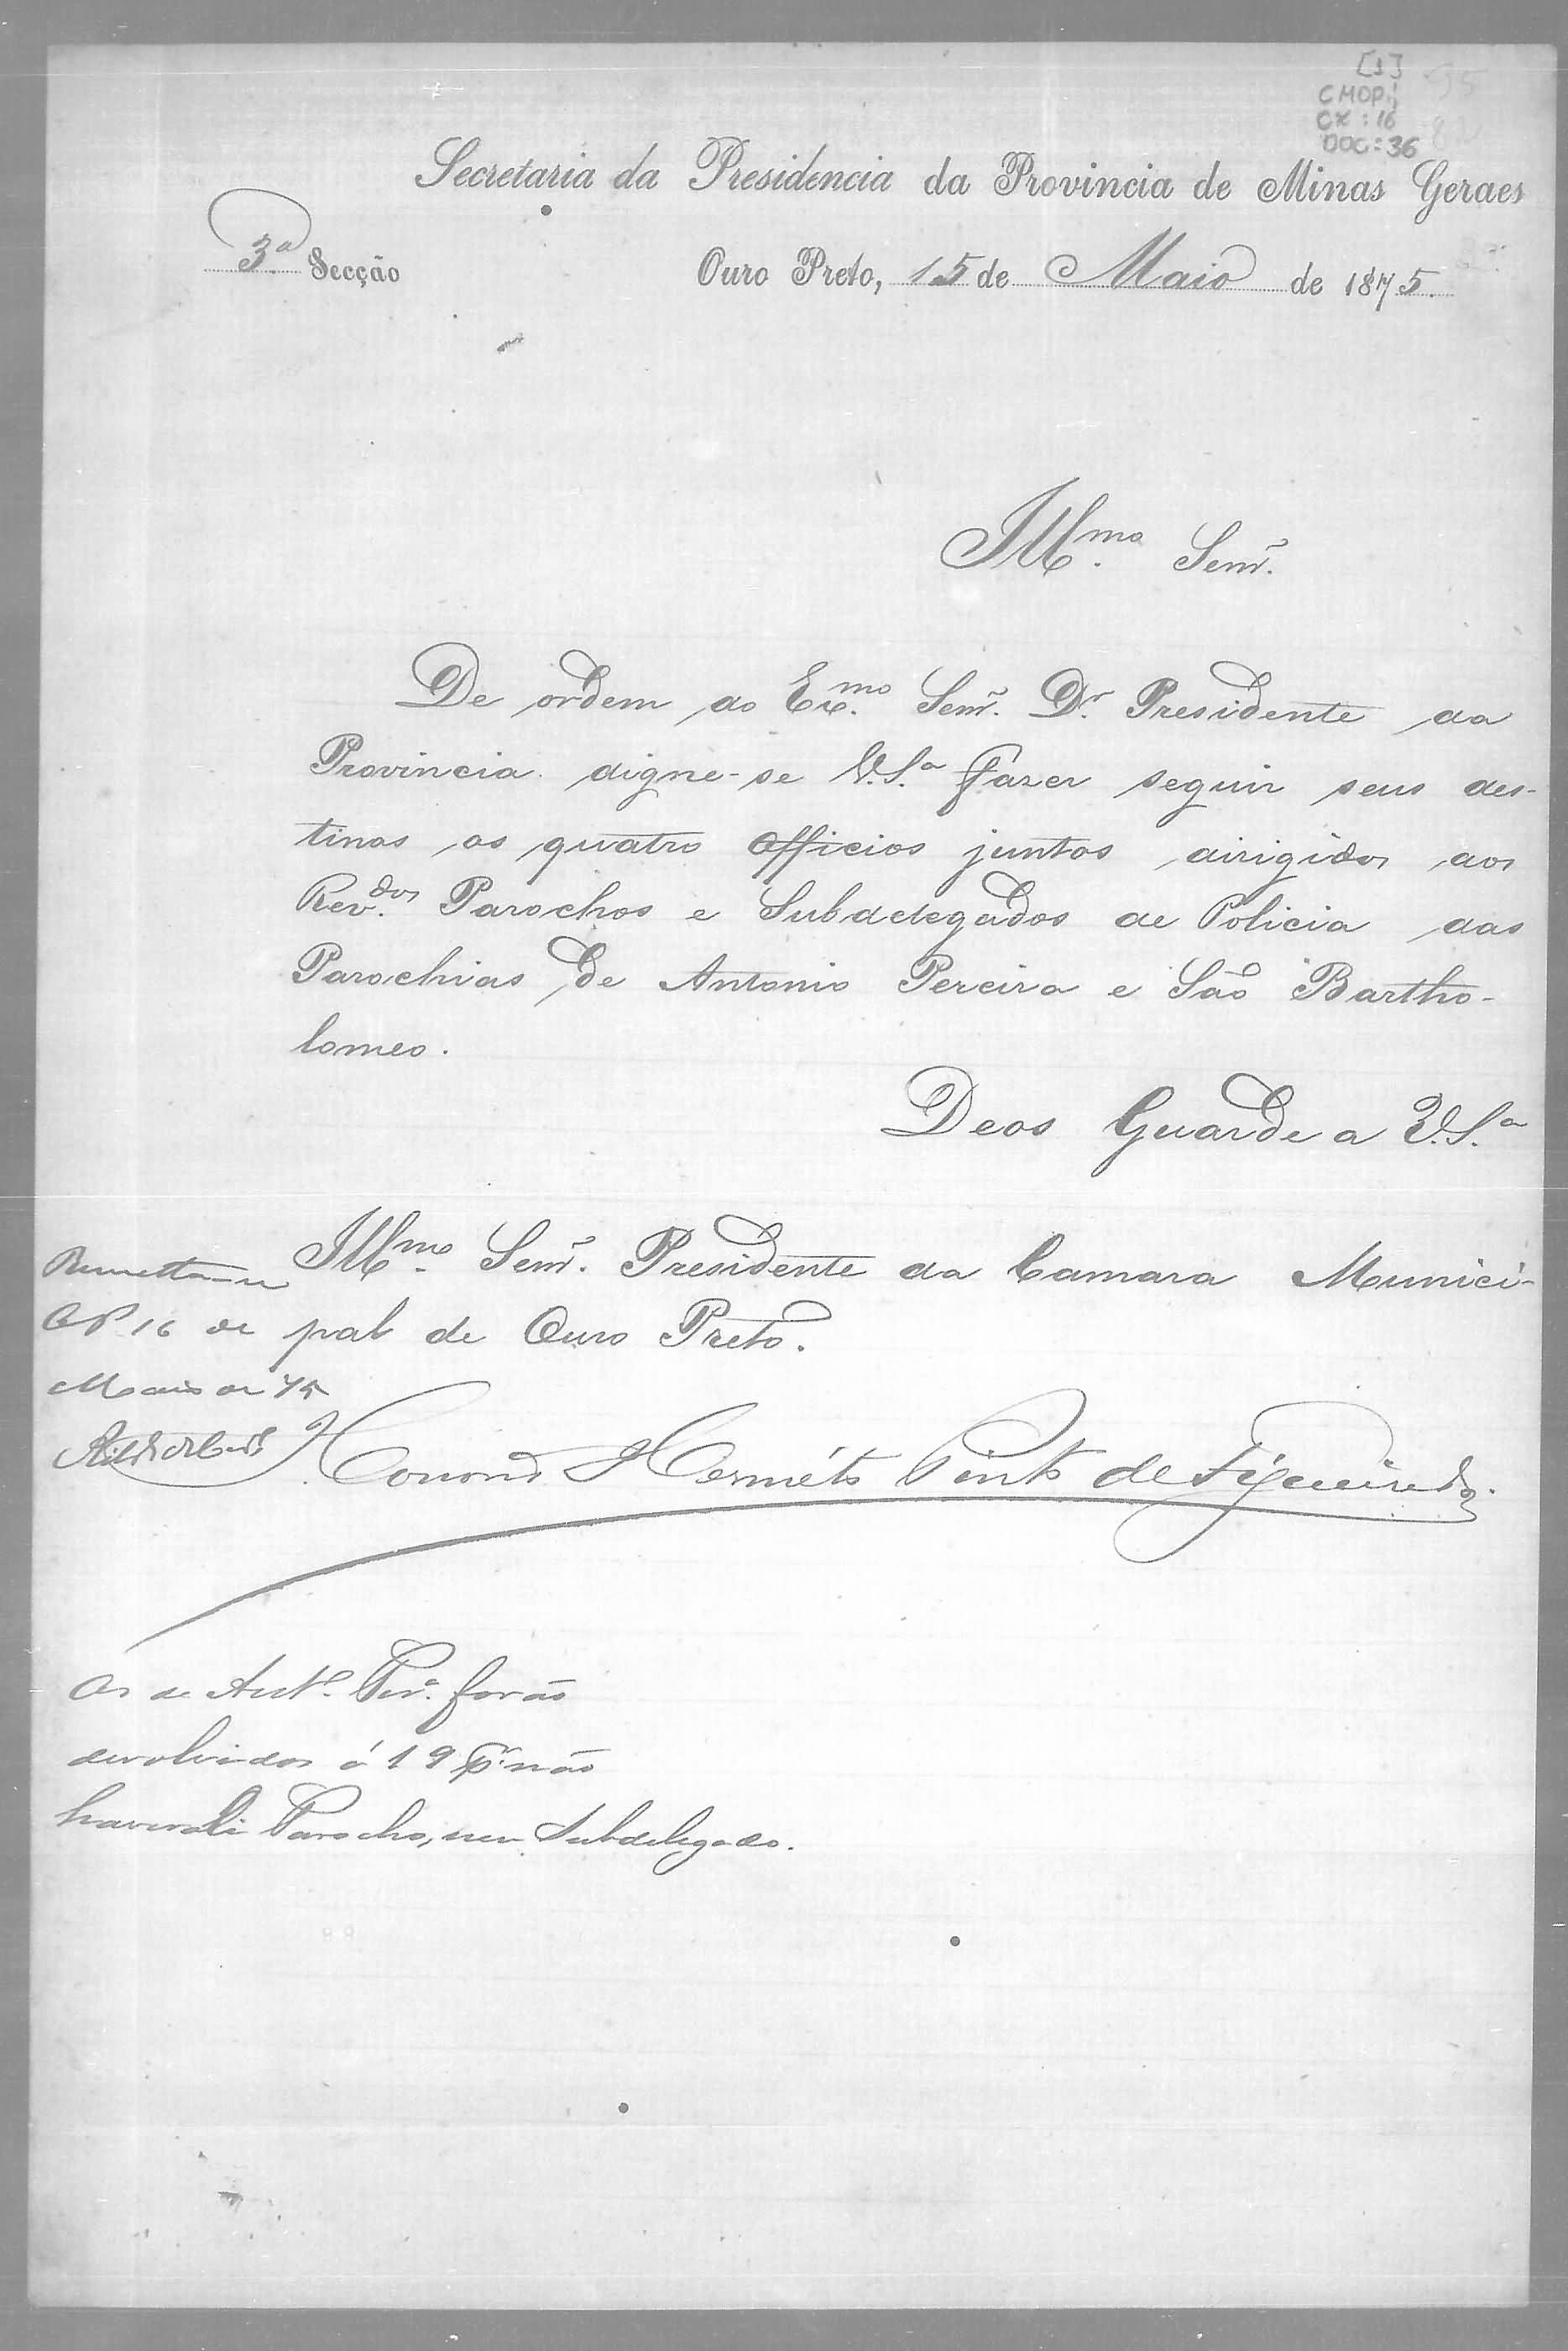 [1]
CMOP;
CX: 16
DOC: 36
Secretaria da Presidencia da Provincia de Minas Geraes
3ª Secção
Ouro Preto, 15 de Maio de 1875.
Illmo. Senr.
De ordem do Exmo. Senr. Dr. Presidente da
Provincia digne-se V.Sª fazer seguir seus des-
tinos os quatro officios juntos dirigidos aos
Revdos. Parochos e Subdelegados de Policia das
Parochias de Antonio Pereira e São Bartho-
lomeo.
Deos Guarde a V.Sª
Illmo. Senr. Presidente da Camara Munici-
pal de Ouro Preto.
Remetta-se
OP. 16 de
Maio de 75
Hermeto Pinto de Figueiredo.
Os de Antº. Perª. forão
devolvidos á 19 pr. não
haver ali Parocho, nem Subdelegado.